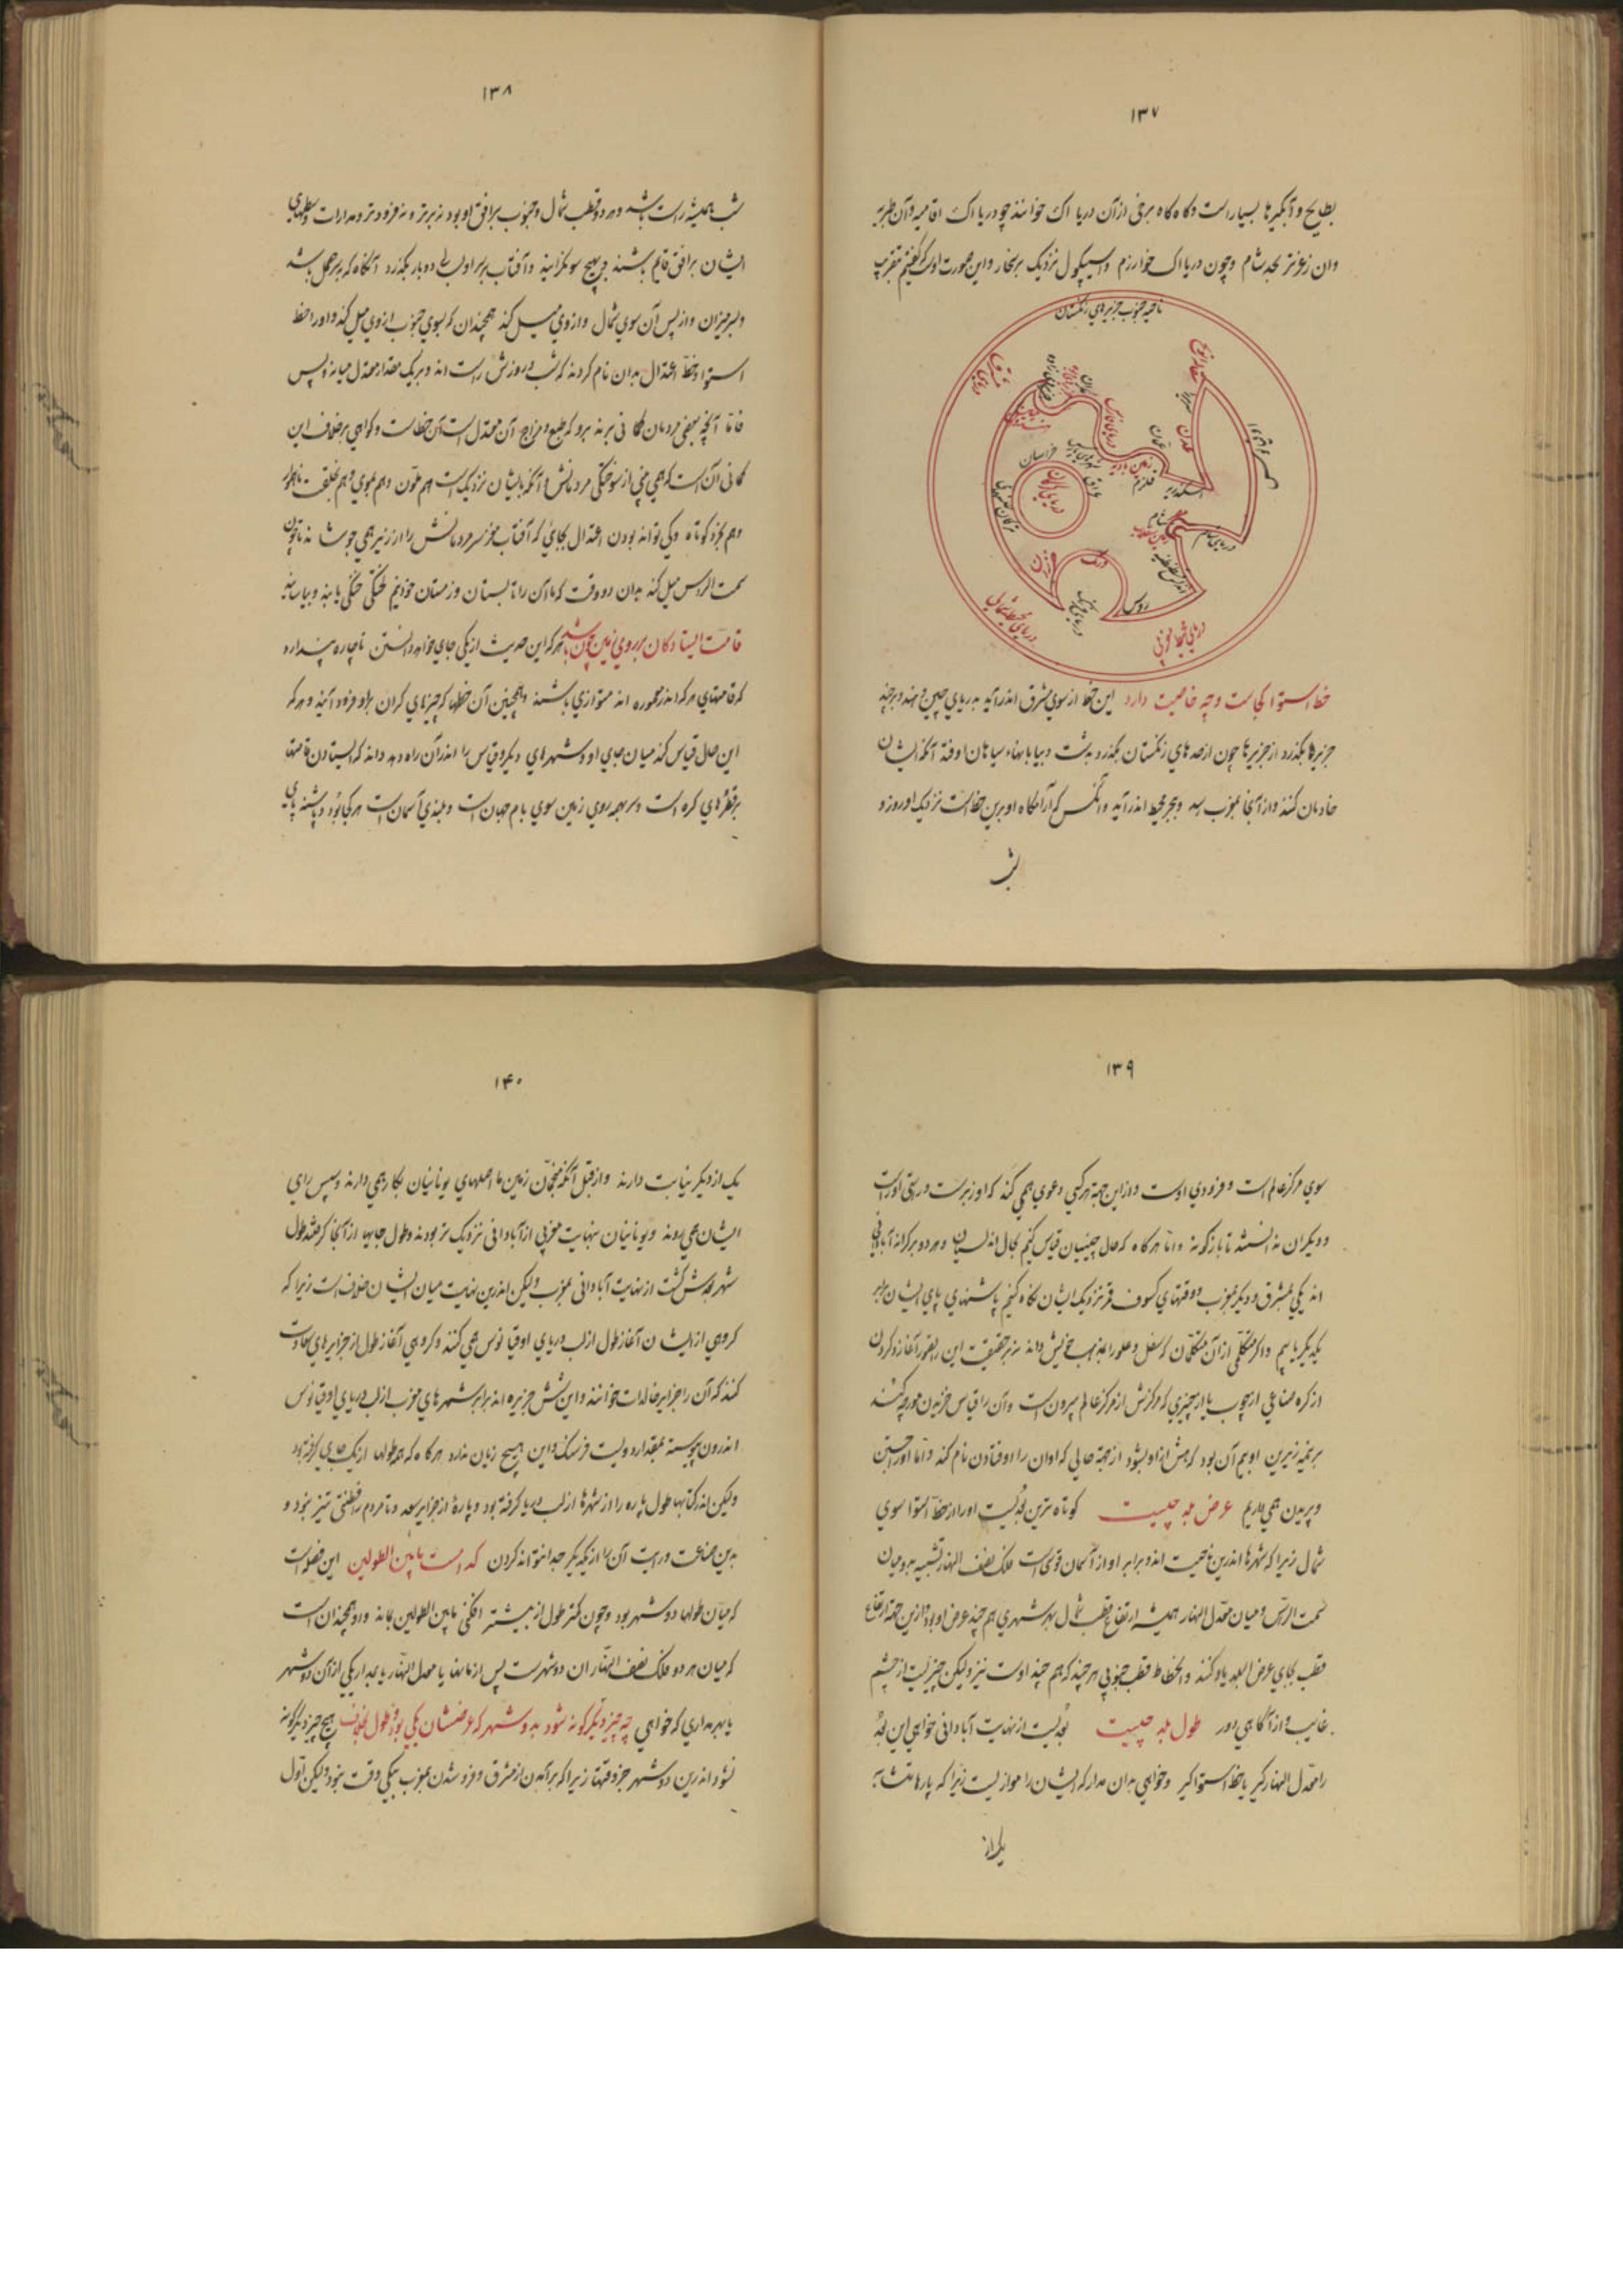 ۱۳۷
بطایح و آبگیرها بسیارست و گاه گاه برخی از آن دریا اک خوانند چو دریا اک افامیه و آن طبریّه
و آن زغر نزد بحد شام و چون دریا اک خوارزم و ایسیکول نزدیک برسخان و این صورت اوست که گفتیم بتقریب
ناحیه جنوب جزیرهای زنگستان
خراسان
عراق
زمین بادیه
قلزم
اسکندریه
عدن
عمان
دریای شام
شام
روس
ورنک
خزران
خط استوا کجاست و چه خاصیت دارد این خط از سوی مشرق اندر آید به دریای چین و هند و بر چند
جزیرها بگذرد از جزیرها چون از حدهای زنگستان بگذرد بدشت و بیابانهاء سیاهان اوفتد آنکه ایشان
خادمان کنند و از آنجا بمغرب رسد و ببحر محیط اندر آید و آنکس که آرامگاه او برین خط است نزدیک او روز و
شب
۱۳۸
شب همیشه راست باشند و هر دو قطب شمال و جنوب بر افق او بود نه زبرتر و نه فرودتر و مدارات و سطحهای
ایشان بر افق قایم باشند و بهیچ سو نگرایند و آفتاب بر سر او بسالی دو بار بگذرد آنگاه که بسر حمل باشد
و بسر میزان و از پس آن سوی شمال و ازوی میل کند همچندان که بسوی جنوب ازوی میل کند و او را خط
استوا و خط اعتدال بدان نام کردند که شب و روزش راست اند و بر یک مقدار معتدل میانه و پس
فامّا آنچه بعضی مردمان گمانی برند برو که طبع و مزاج آن معتدل است آن خطاست و گواهی بر خلاف این
گمانی آن است که همی بینی از سوختگی مردمانش و آنکه بایشان نزدیک است هم بلون و هم بموی و هم بخلقت ناهموار
و هم بخرد کوتاه و کی تواند بودن اعتدال بجایی که آفتاب مغز سر مردمانش را از زبر همی جوشاند تا چون
سمت الراس میل کند بدان دو وقت که ما آن را تابستان و زمستان خوانیم لختی خنکی یابند و بیاسایند
قامت ایستادگان بر روی زمین چون باشد هر که این حدیث از یکی جای خواهد دانستن ناچاره پندارد
که قامتهای هر که اندر معموره اند متوازی باشند و همچنین آن خطها که چیزهای گران براو فرود آیند و هر که
این حال قیاس کند میان جای او و شهرهای دیگر و قیاس را اندر آن راه دهد داند که ایستادن قامتها
بر قطرهای کره است و سر بهمه روی زمین سوی بام جهان است و بلندی آسمان است هر کجا بود و پاشنه پای
۱۳۹
سوی مرکز عالم است و فرودی اوست و از این جهة هر کسی دعوی همی کند که او زبرست و راستی اوراست
و دیگران نه ایستند تا بازگونه و امّا هر گاه که حال چینیان قیاس کنیم بحال اندلسیان و هر دو بر کرانه آبادانی
اند یکی بمشرق و دیگر بمغرب و وقتهای کسوف قمر نزدیک ایشان نگاه کنیم پاشنهای پای ایشان برابر
یکدیگر یابیم و اگر متکلّمی از آن متکلّمان که سفل و علو را بمذهب خویش داند نه بر حقیقت این را بفهم آغازد کردن
از کره صناعی از چوب یا از چیزی که مرکزش از مرکز عالم بیرون است و آن را قیاس خزیدن مورچه کند
بر نیمه زیرین او بیم آن بود که هش از او بشود از جهة حالی که اوان را اوفتادن نام کند و امّا او راجستن
و پریدن همی داریم عرض بلد چیست کوتاه ترین بُعدیست او را از خطّ استوا سوی
شمال زیرا که شهرها اندرین ناحیت اند و برابر او از آسمان قوسی است فلک نصف النهار شبیه بدو میان
سمت الرّاس و میان معدّل النهار همیشه ارتفاع قطب شمال بهر شهری هم چند عرض او بود و ازین جهة ارتفاع
قطب بجای عرض البلد یاد کنند و انحطاط قطب جنوبی هر چند که هم چند اوست نیز ولیکن چیزیست از چشم
غایب و از آگاهی دور طول بلد چیست بُعدیست از نهایت آبادانی خواهی این بُعد
را معدّل النهار گیر یا خط استوا گیر و خواهی بدان مدار که ایشان را موازیست زیرا که پارهامتشابه
یک از
۱۴۰
یک از دیگر نیابت دارند و از قبل آنکه منجّمان زمین ما اصلهای یونانیان بکار همی دارند و سپس رای
ایشان همی روند و یونانیان بنهایت مغربی از آبادانی نزدیک تر بودند و طول جایها از آنجا گرفتند طول
شهر بُعدش گشت از نهایت آبادانی بمغرب ولیکن اندرین نهایت میان ایشان خلاف است زیرا که
گروهی از ایشان آغاز طول از لب دریای اوقیانوس همی کنند و گروهی آغاز طول از جزایرهای سعادت
کنند که آن را جزایر خالدات خوانند و این شش جزیره اند برابر شهرهای مغرب از لب دریای اوقیانوس
اندرون پیوسته بمقدار دویست فرسنگ و این هیچ زیان ندارد هر گاه که همه طولها از یک جای گرفته بود
ولیکن اندر کتابها طول پاره را از شهرها از لب دریا گرفته بود و پارهٔ از جزایر سعد و تا مردم را فطنتی تیز نبود و
بدین صناعت درایت آن را از یکدیگر جدا نتواند کردن کدامست مابین الطولین این فضل است
که میان طولها دو شهر بود و چون کمتر طول از بیشتر افکنی مابین الطولین بماند و او همچندان است
که میان هر دو فلک نصف النهار آن دو شهرست پس از زمانها یا معدل النهار یا بمدار یکی از آن دو شهر
یا بهر مداری که خواهی چه چیز دیگرگونه شود بدو شهر که عرضشان یکی بود و طول مخالف هیچ چیز دیگرگونه
نشود اندرین دو شهر جز وقتها زیرا که برآمدن از مشرق و فرو شدن بمغرب بیکی وقت نبود ولیکن اوّل